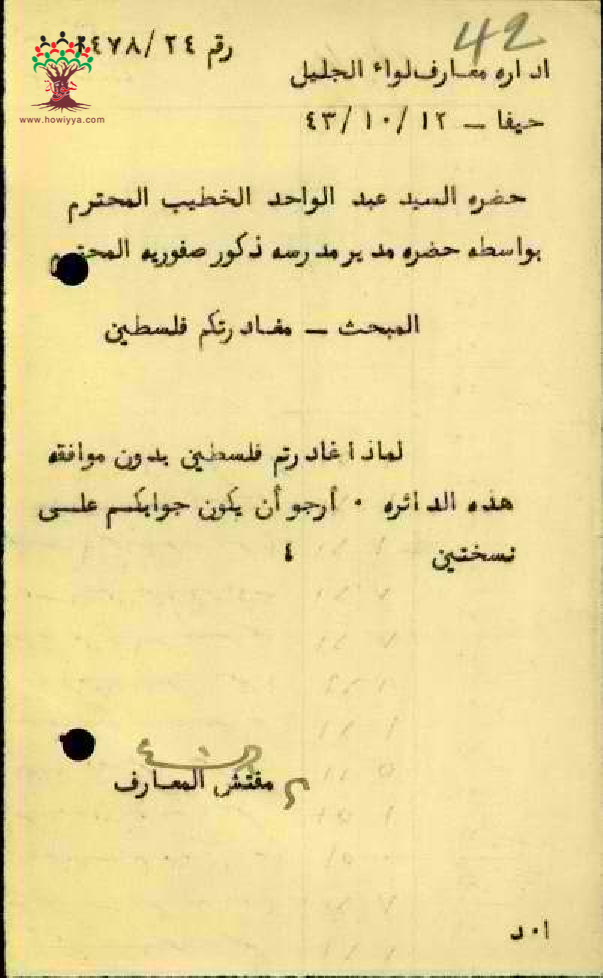 42
رقم ٢٤/ ٤٧٨
www.howiyya.com
اداره معارف لواء الجليل
حيفا ـ ١٢/ ١٠/ ٤٣
حضره السيد عبد الواحد الخطيب المحترم
بواسطه حضره مدير مدرسه ذكور صفوريه المحترم
المبحث ـ مغادرتكم فلسطين
لماذا غادرتم فلسطين بدون موافقه
هذه الدائره ٠ أرجو أن يكون جوابكم على
نسختين ٤
مفتش المعارف
ا٠د